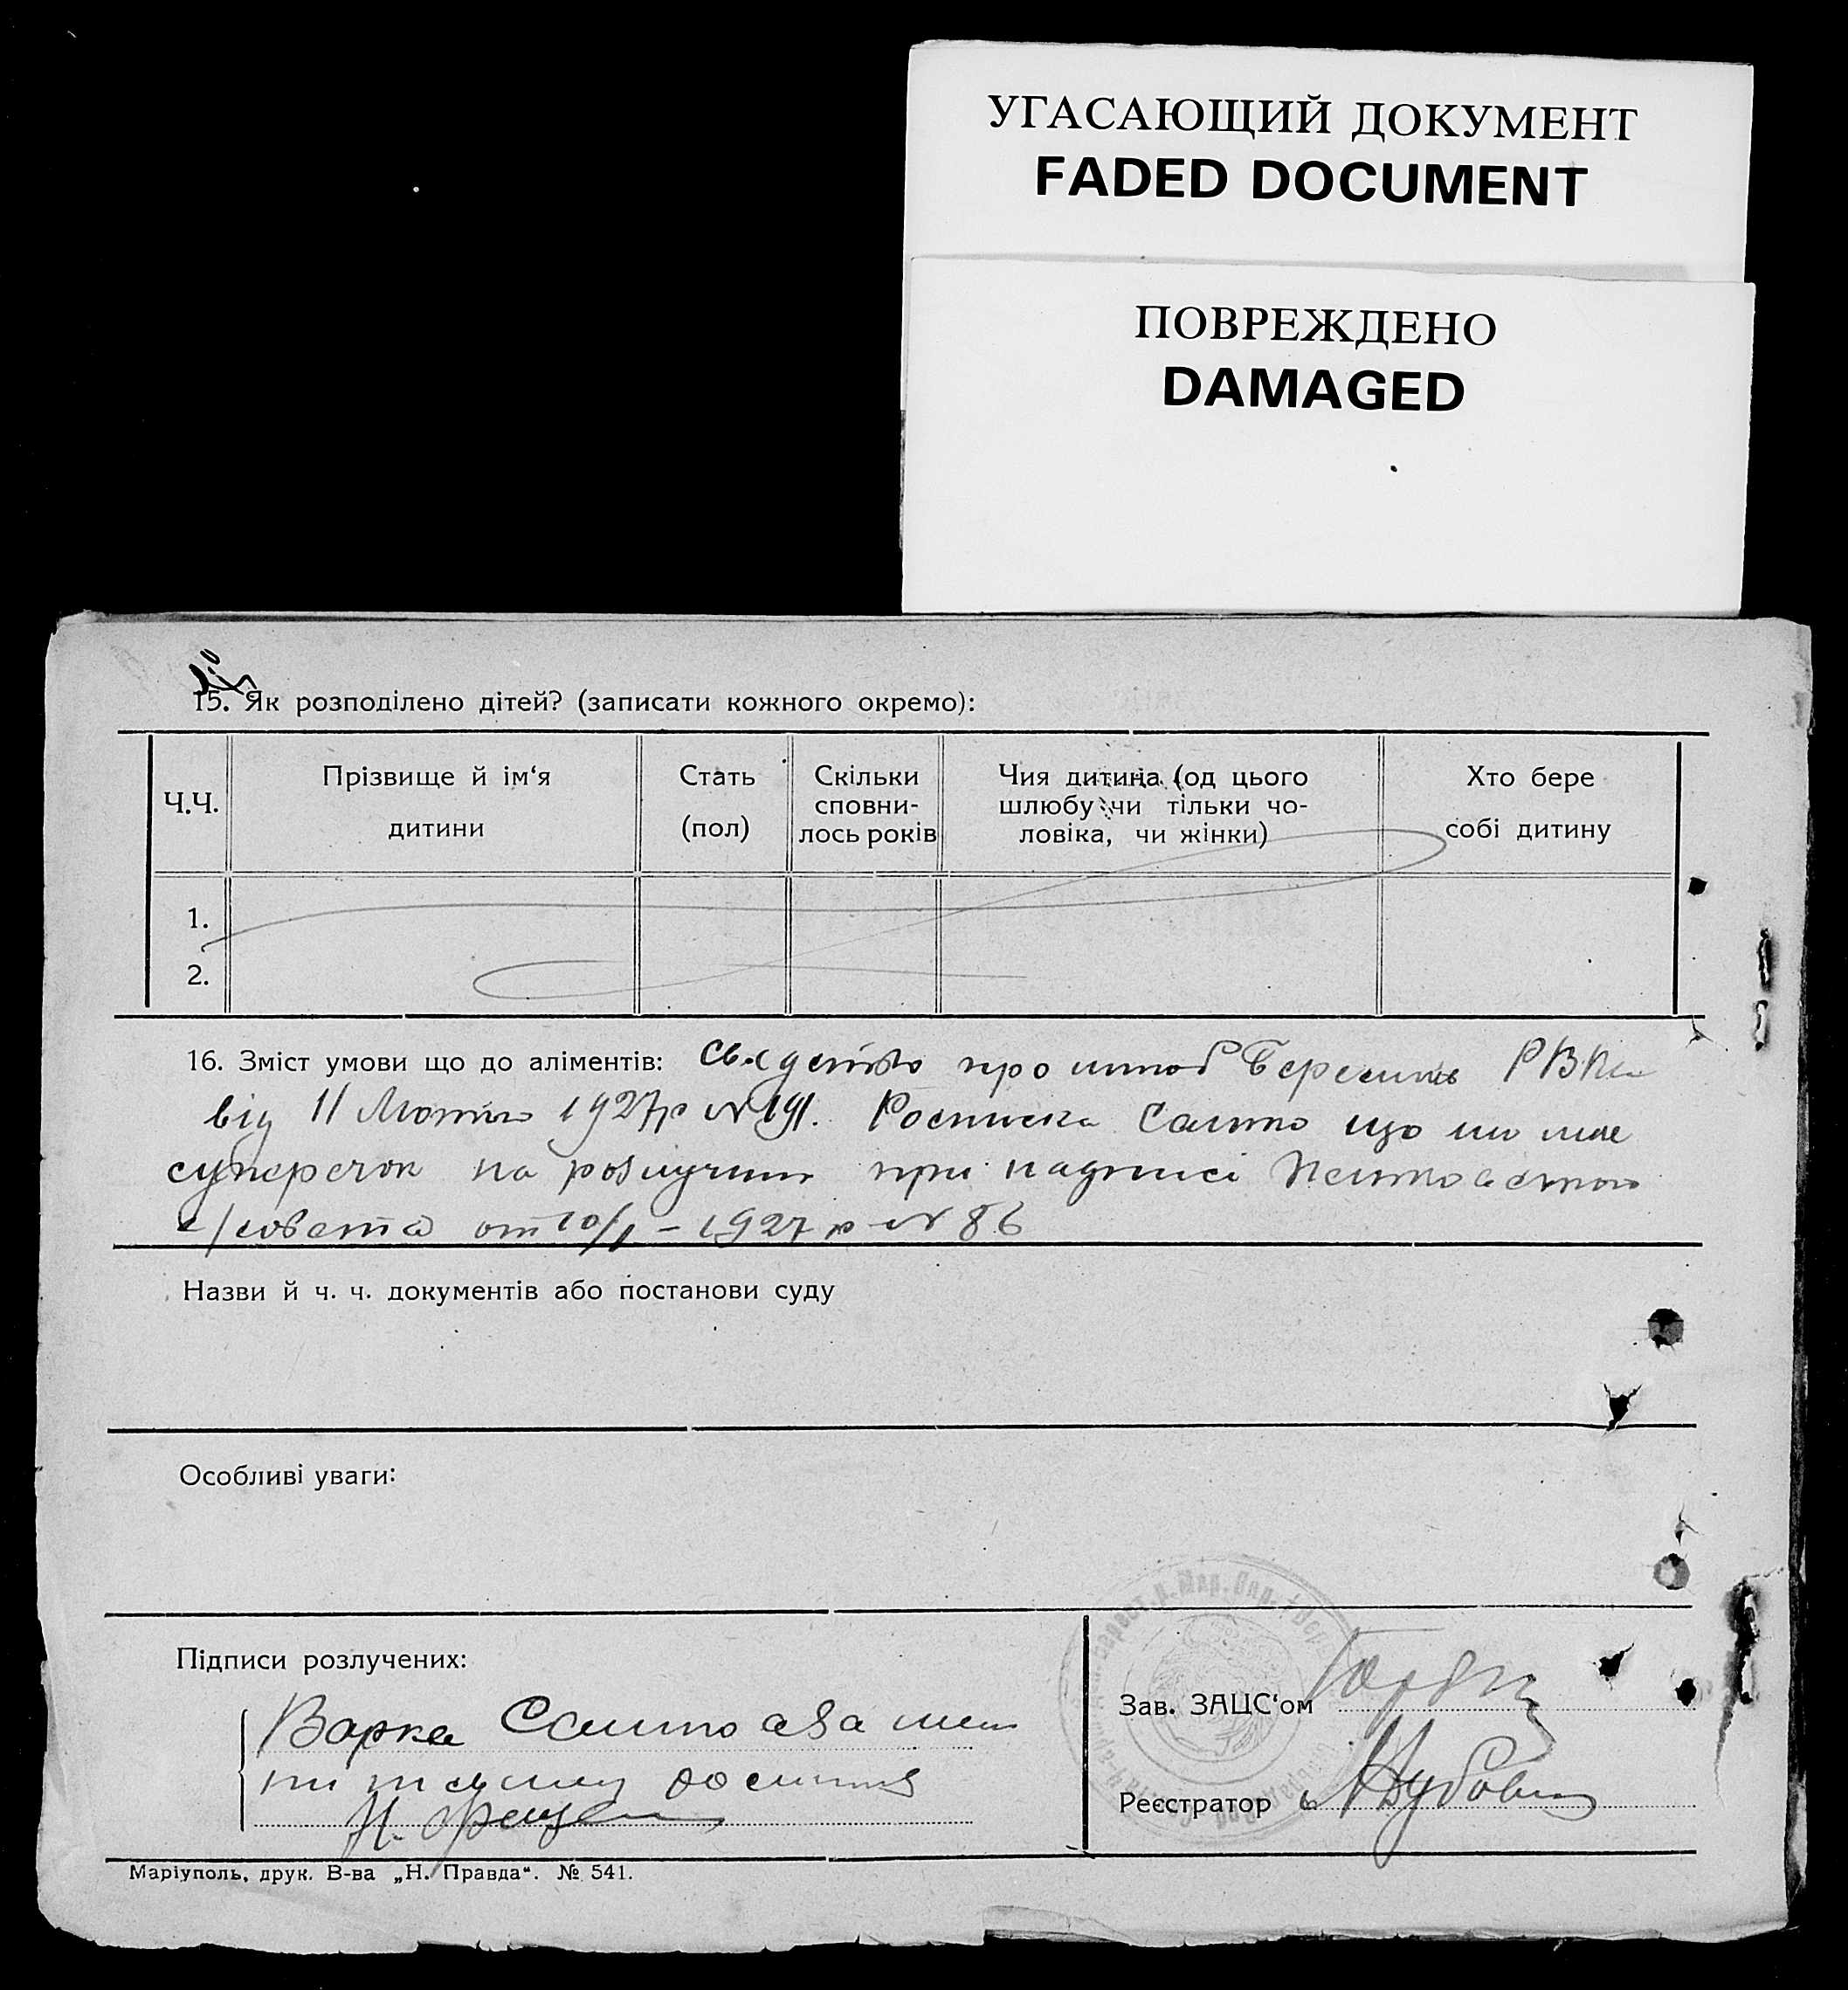 УГАСАЮЩИЙ ДОКУМЕНТ
FADED DOCUMENT
ПОВРЕЖДЕНО
DAMAGED
15. Як розподілено дітей? (записати кожного окремо):
Ч.Ч.
Прізвище й ім‘я
дитини
Стать
(пол)
Скільки
сповни-
лось років
Чия дитина (од цього
шлюбу чи тільки чо-
ловіка, чи жінки)
Хто бере
собі дитину
1.
2.
16. Зміст умови що до аліментів: про шлюб РВК
від 11 Лютого 1927р № 191. Росписка що не має
суперечок на при надписі
с/совета от 10/ - 1927 р № 86
Назви й ч. ч. документів або постанови суду
Особливі уваги:
Підписи розлучених:
Варка
Зав. ЗАЦС‘ом
Реєстратор
Маріуполь, друк. В-ва „Н. Правда“. № 541.